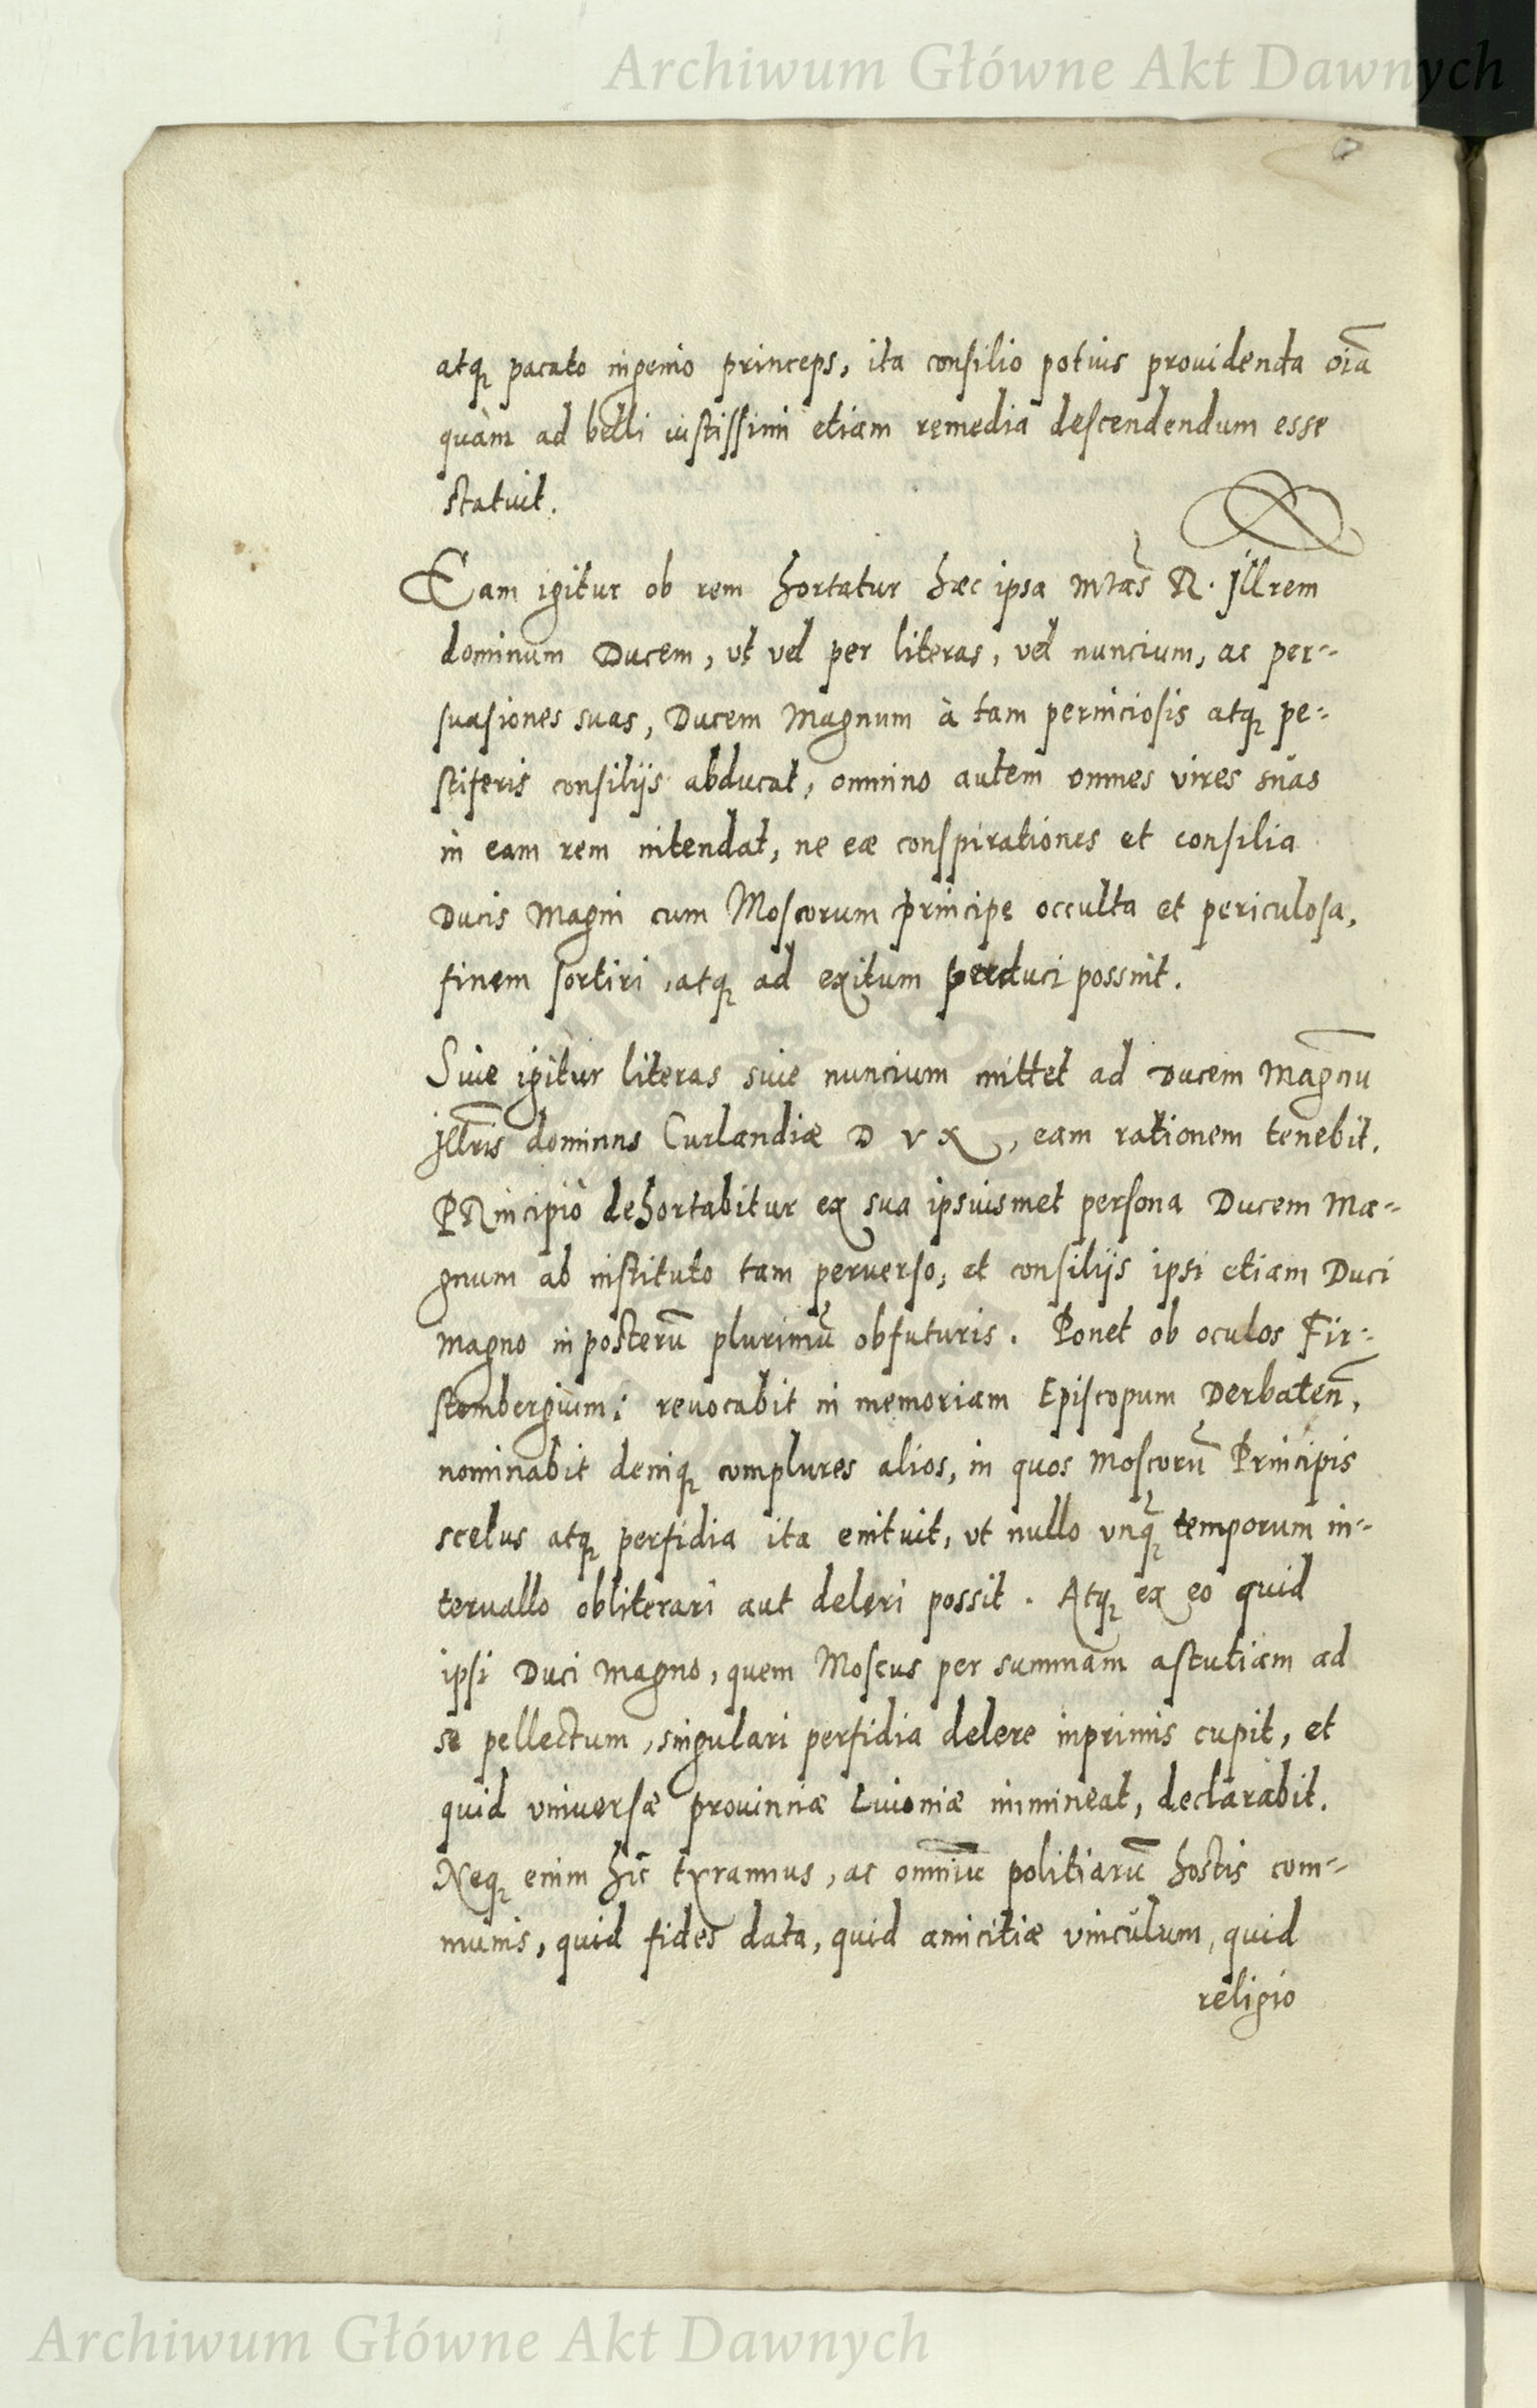 Archiwum Główne Akt Dawnych
atq; pacato ingenio princeps, ita consilio potius prouidenda oīa
quàm ad belli iustissimi etiam remedia descendendum esse
statuit.
Eam igitur ob rem hortatur hæc ipsa Mtas R. Jllrem
dominum Ducem, vt vel per literas, vel nuncium, ac per=
suasiones suas, Ducem Magnum à tam perniciosis atq; pe=
stiferis consilijs abducat, omnino autem omnes vires suas
in eam rem intendat, ne eæ conspirationes et consilia
Ducis Magni cum Moscorum principe occulta et periculosa,
finem sortiri, atq; ad exitum perduci possint.
Siue igitur literas siue nuncium mittet ad Ducem Magnū
Jllris dominus Curlandiæ DVX, eam rationem tenebit.
PRincipiò dehortabitur ex sua ipsiusmet persona Ducem Ma=
gnum ab instituto tam peruerso, et consilijs ipsi etiam Duci
Magno in posterū plurimū obfuturis. Ponet ob oculos Fir=
stembergium; reuocabit in memoriam Episcopum Derbaten̄,
nominabit deniq; complures alios, in quos Moscorū Principis
scelus atq; perfidia ita enituit, vt nullo vnq̃; temporum in=
teruallo obliterari aut deleri possit. Atq; ex eo quid
ipsi Duci Magno, quem Moscus per summam astutiam ad
se pellectum, singulari perfidia delere inprimis cupit, et
quid vniuersæ prouinciæ Liuoniæ immineat, declarabit.
Neq; enim hic tyrannus, ac omniū politiarū hostis com=
munis, quid fides data, quid amicitiæ vinculum, quid
religio
Archiwum Główne Akt Dawnych